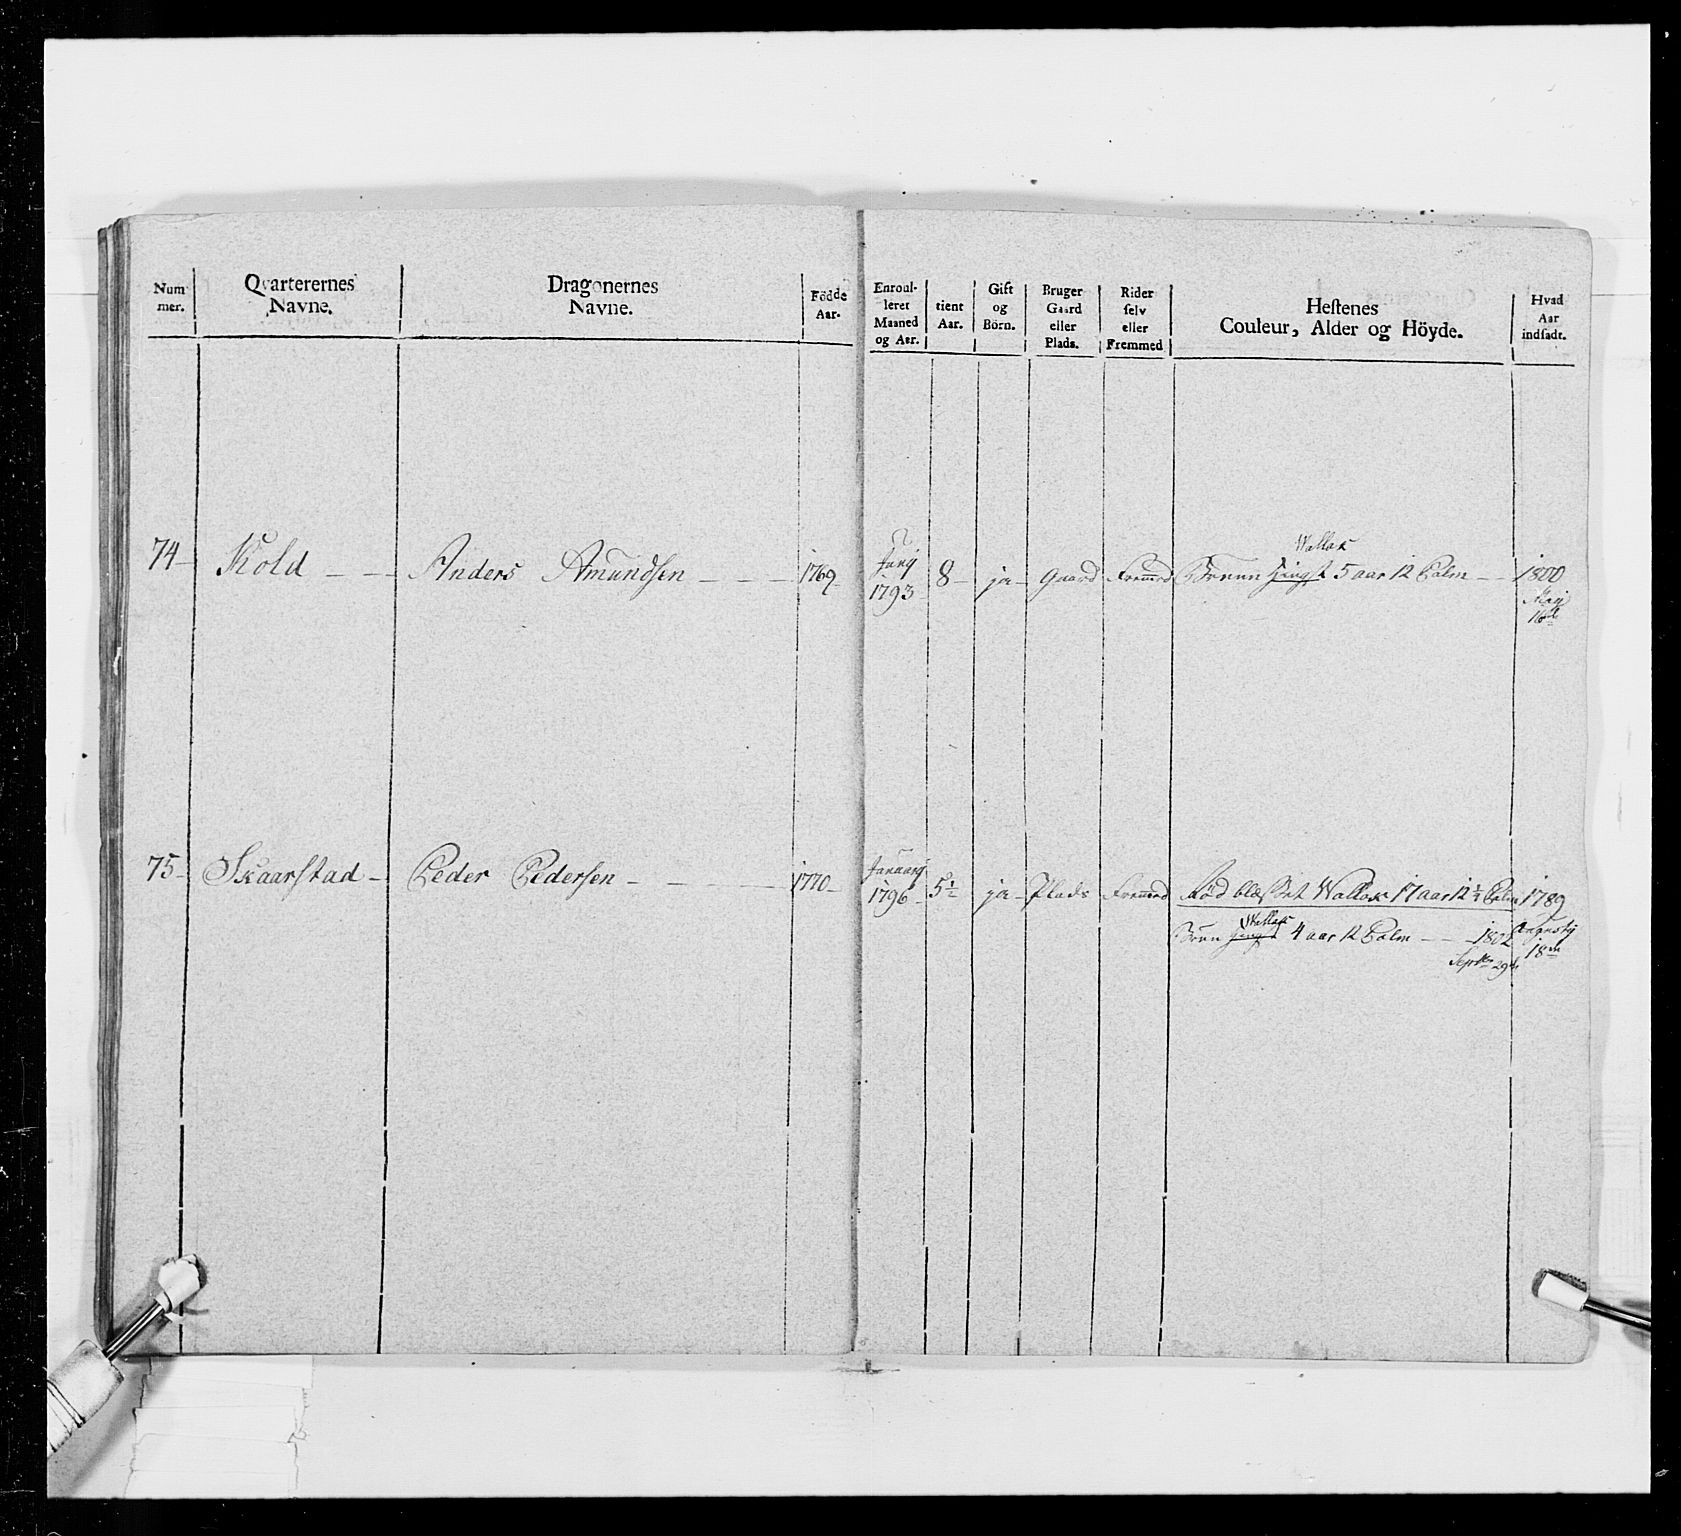 Num mer.
Qvarterernes Navne.
Dragonernes Navne.
Födde Aar.
Enroul- leret Maaned og Aar.
tient Aar.
Gift og Börn.
Bruger Gaard eller Plads.
Rider selv eller Fremmed
Hestenes Couleur, Alder og Höyde.
Hvad Aar indsadt.
Wallak
74 Kold Anders Amundsen 1769 Junij 1793 8 ja Gaard Fremed Bruun Hingst 5 aar 12 Palm 1800
16de
75 Skaarstad Peder Pedersen 1770 Januarij 1796 5½ ja Plads Fremed Röd blesset Wallak 17 aar 12¼ Palm 1789
Wallak
Bruun Hingst 4 aar 12 Palm 1802 Augustij
Septbr 29de 18de